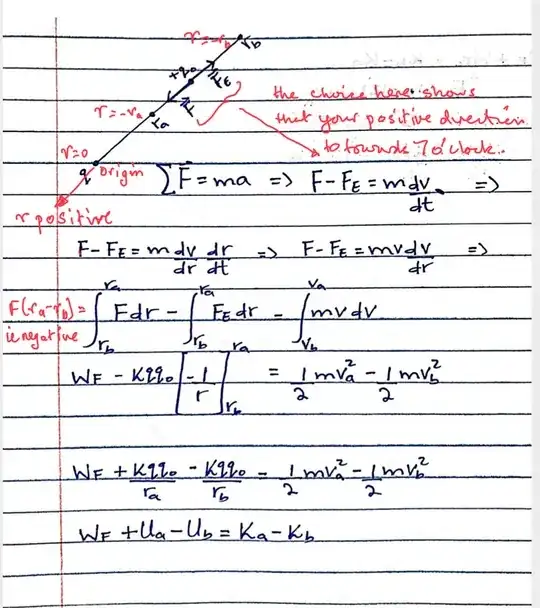 r=-r_b r_b
+q_0 F_E
F
r=-r_a r_a
the choice here shows
that your positive direction
is towards 7 o'clock.
r=0
q origin
r positive
∑F=ma => F-F_E = m dv/dt =>
F-F_E = m dv/dr dr/dt => F-F_E = mv dv/dr =>
F(r_a-r_b)=
ie negative
∫_{r_b}^{r_a} Fdr - ∫_{r_b}^{r_a} F_E dr = ∫_{v_b}^{v_a} mv dv
W_F - Kqq_0 [-1/r]_{r_b}^{r_a} = 1/2 mv_a^2 - 1/2 mv_b^2
W_F + Kqq_0/r_a - Kqq_0/r_b = 1/2 mv_a^2 - 1/2 mv_b^2
W_F + U_a - U_b = K_a - K_b